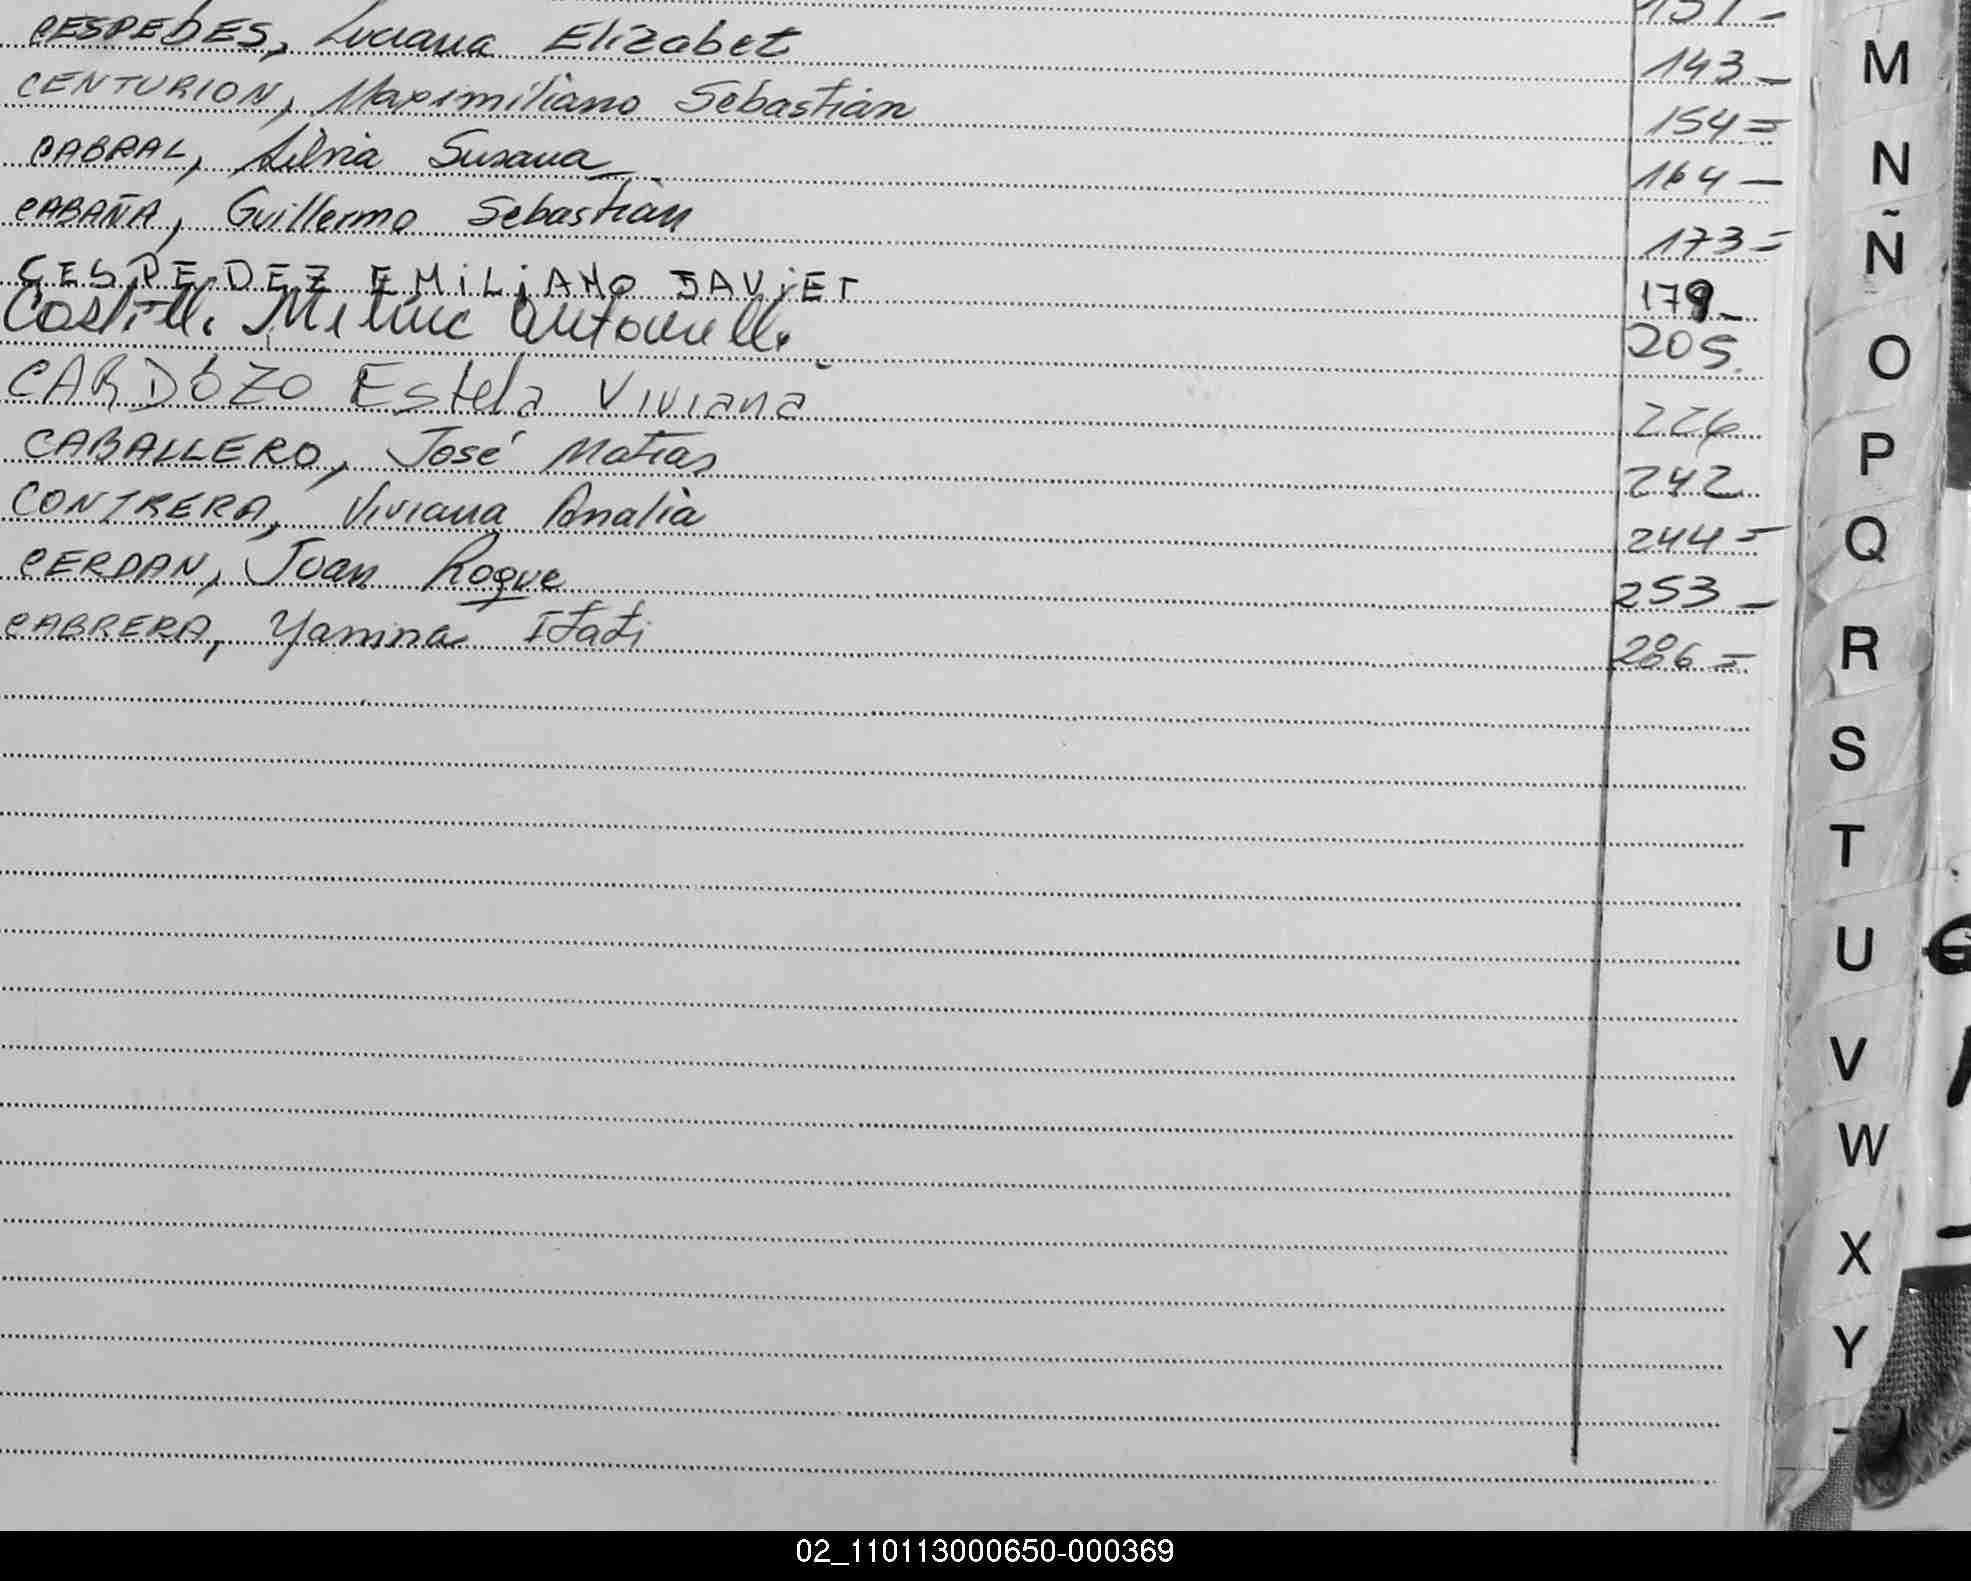 CESPEDES, Luciana Elizabet 143-
CENTURION, Maximiliano Sebastián 154=
CABRAL, Silvia Susana 164-
CABAÑA, Guillermo Sebastián 173=
CESPEDEZ EMILIANO JAVIER 179-
Antonella 205.
CARDOZO Estela Viviana 226
CABALLERO, José Matias 242
CONTRERA, Viviana Analia 244=
CERDAN, Juan Roque 253-
CABRERA, Yanina Itatí 286=
M
N
Ñ
O
P
Q
R
S
T
U
V
W
X
Y
02_110113000650-000369